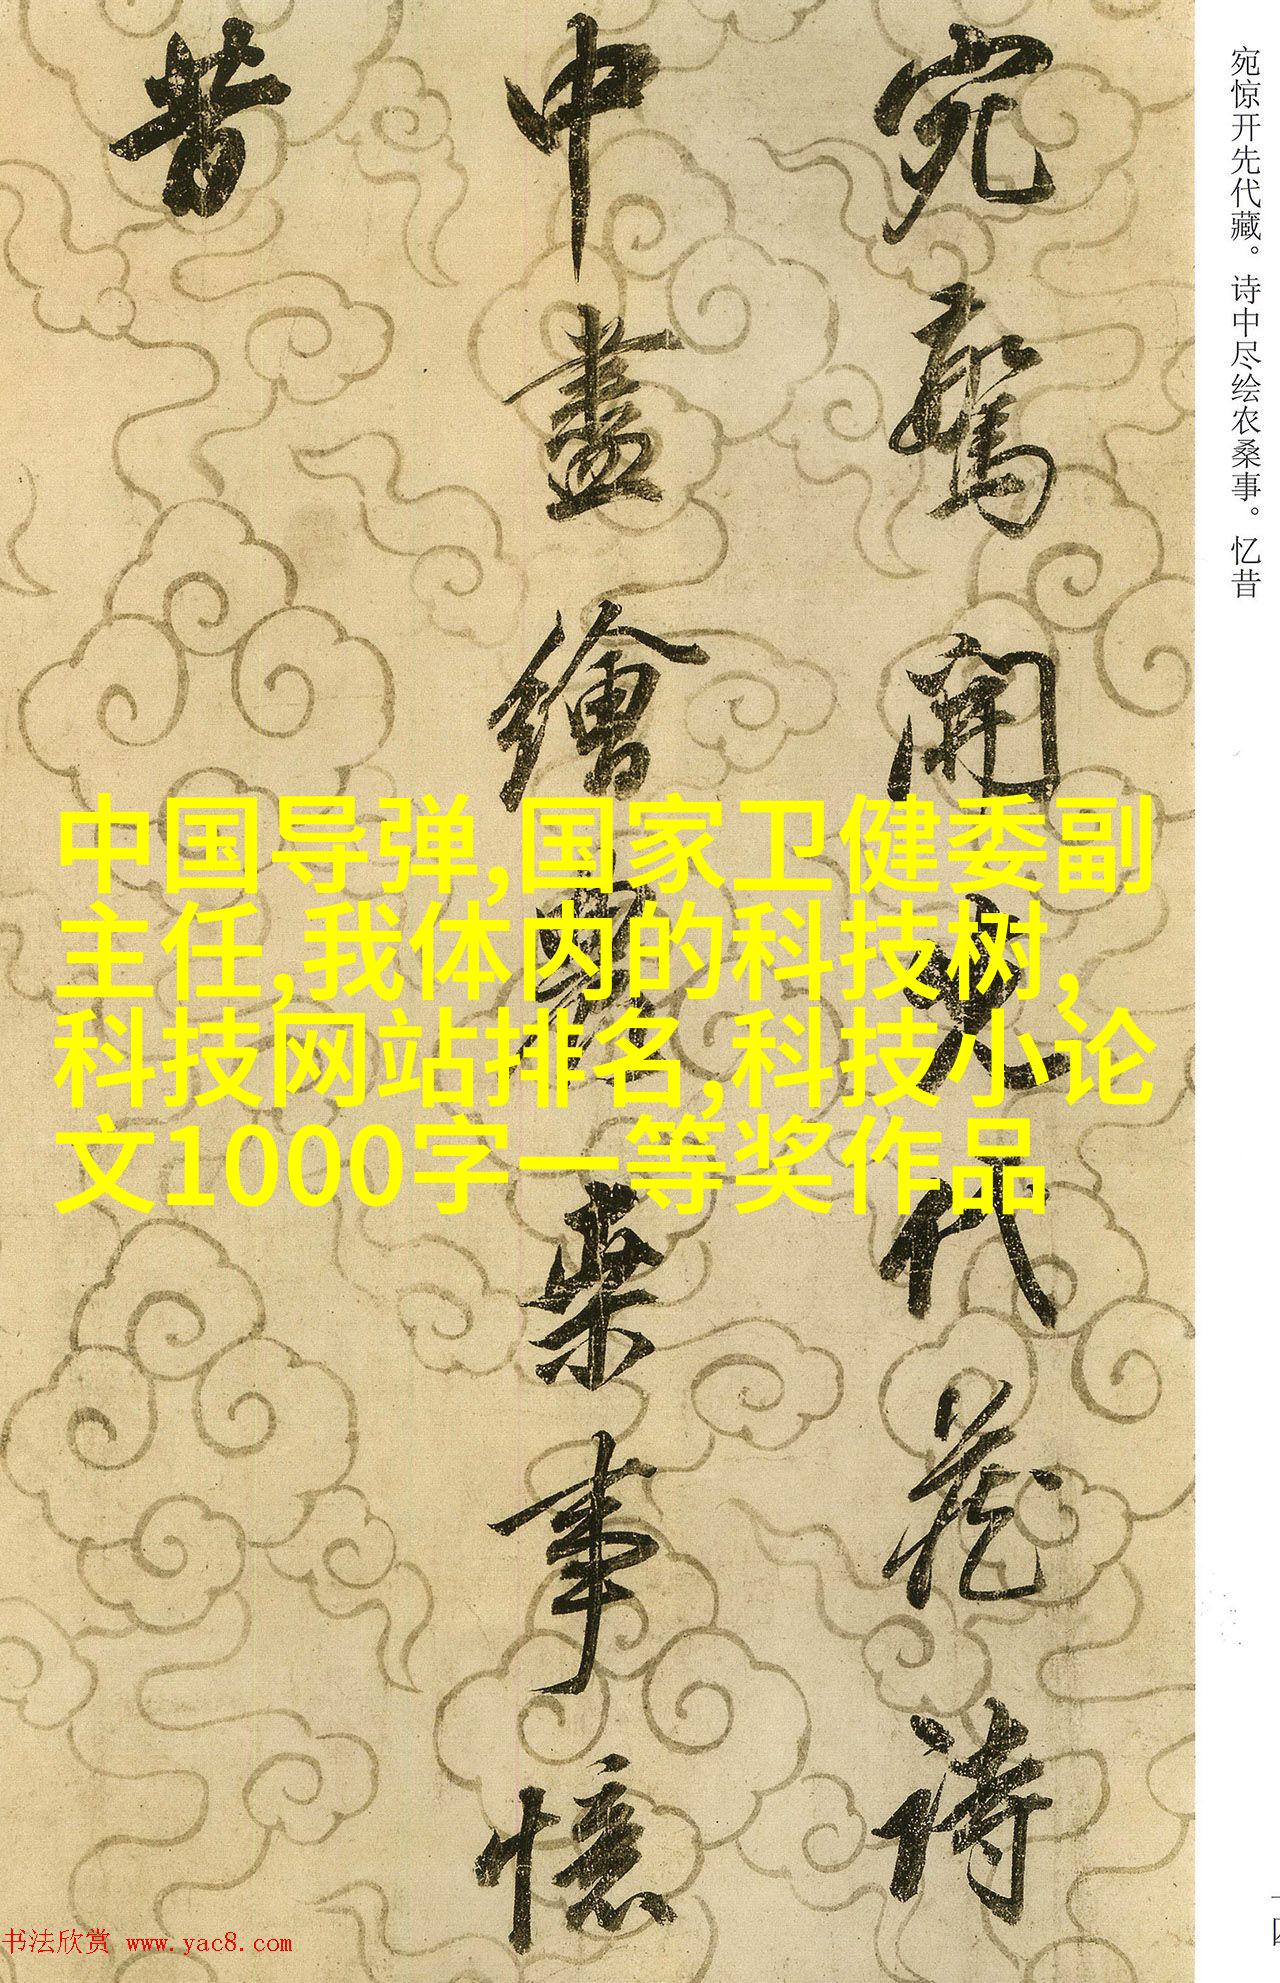 宛惊开先代藏。诗中尽绘农桑事。忆昔
宛驚開先代藏詩
中盡繪農桒事憶
昔
中国导弹,国家卫健委副
主任,我体内的科技树,
科技网站排名,科技小论
文1000字一等奖作品
书法欣赏 www.yac8.com